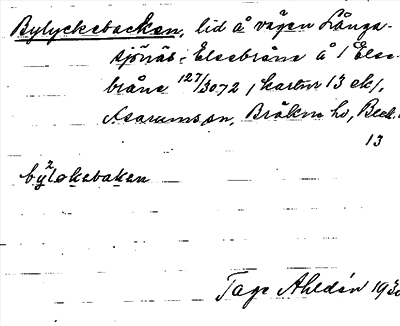 Bylyckebacken, lid å vägen Långa-
sjönäs - Elsebråne å 1 Else-
bråne 127/3072 (kartor 13 ek),
Asarums sn, Bräkne hd, Blek.
13
bỳ²lekebaken
Tage Ahldén 1930